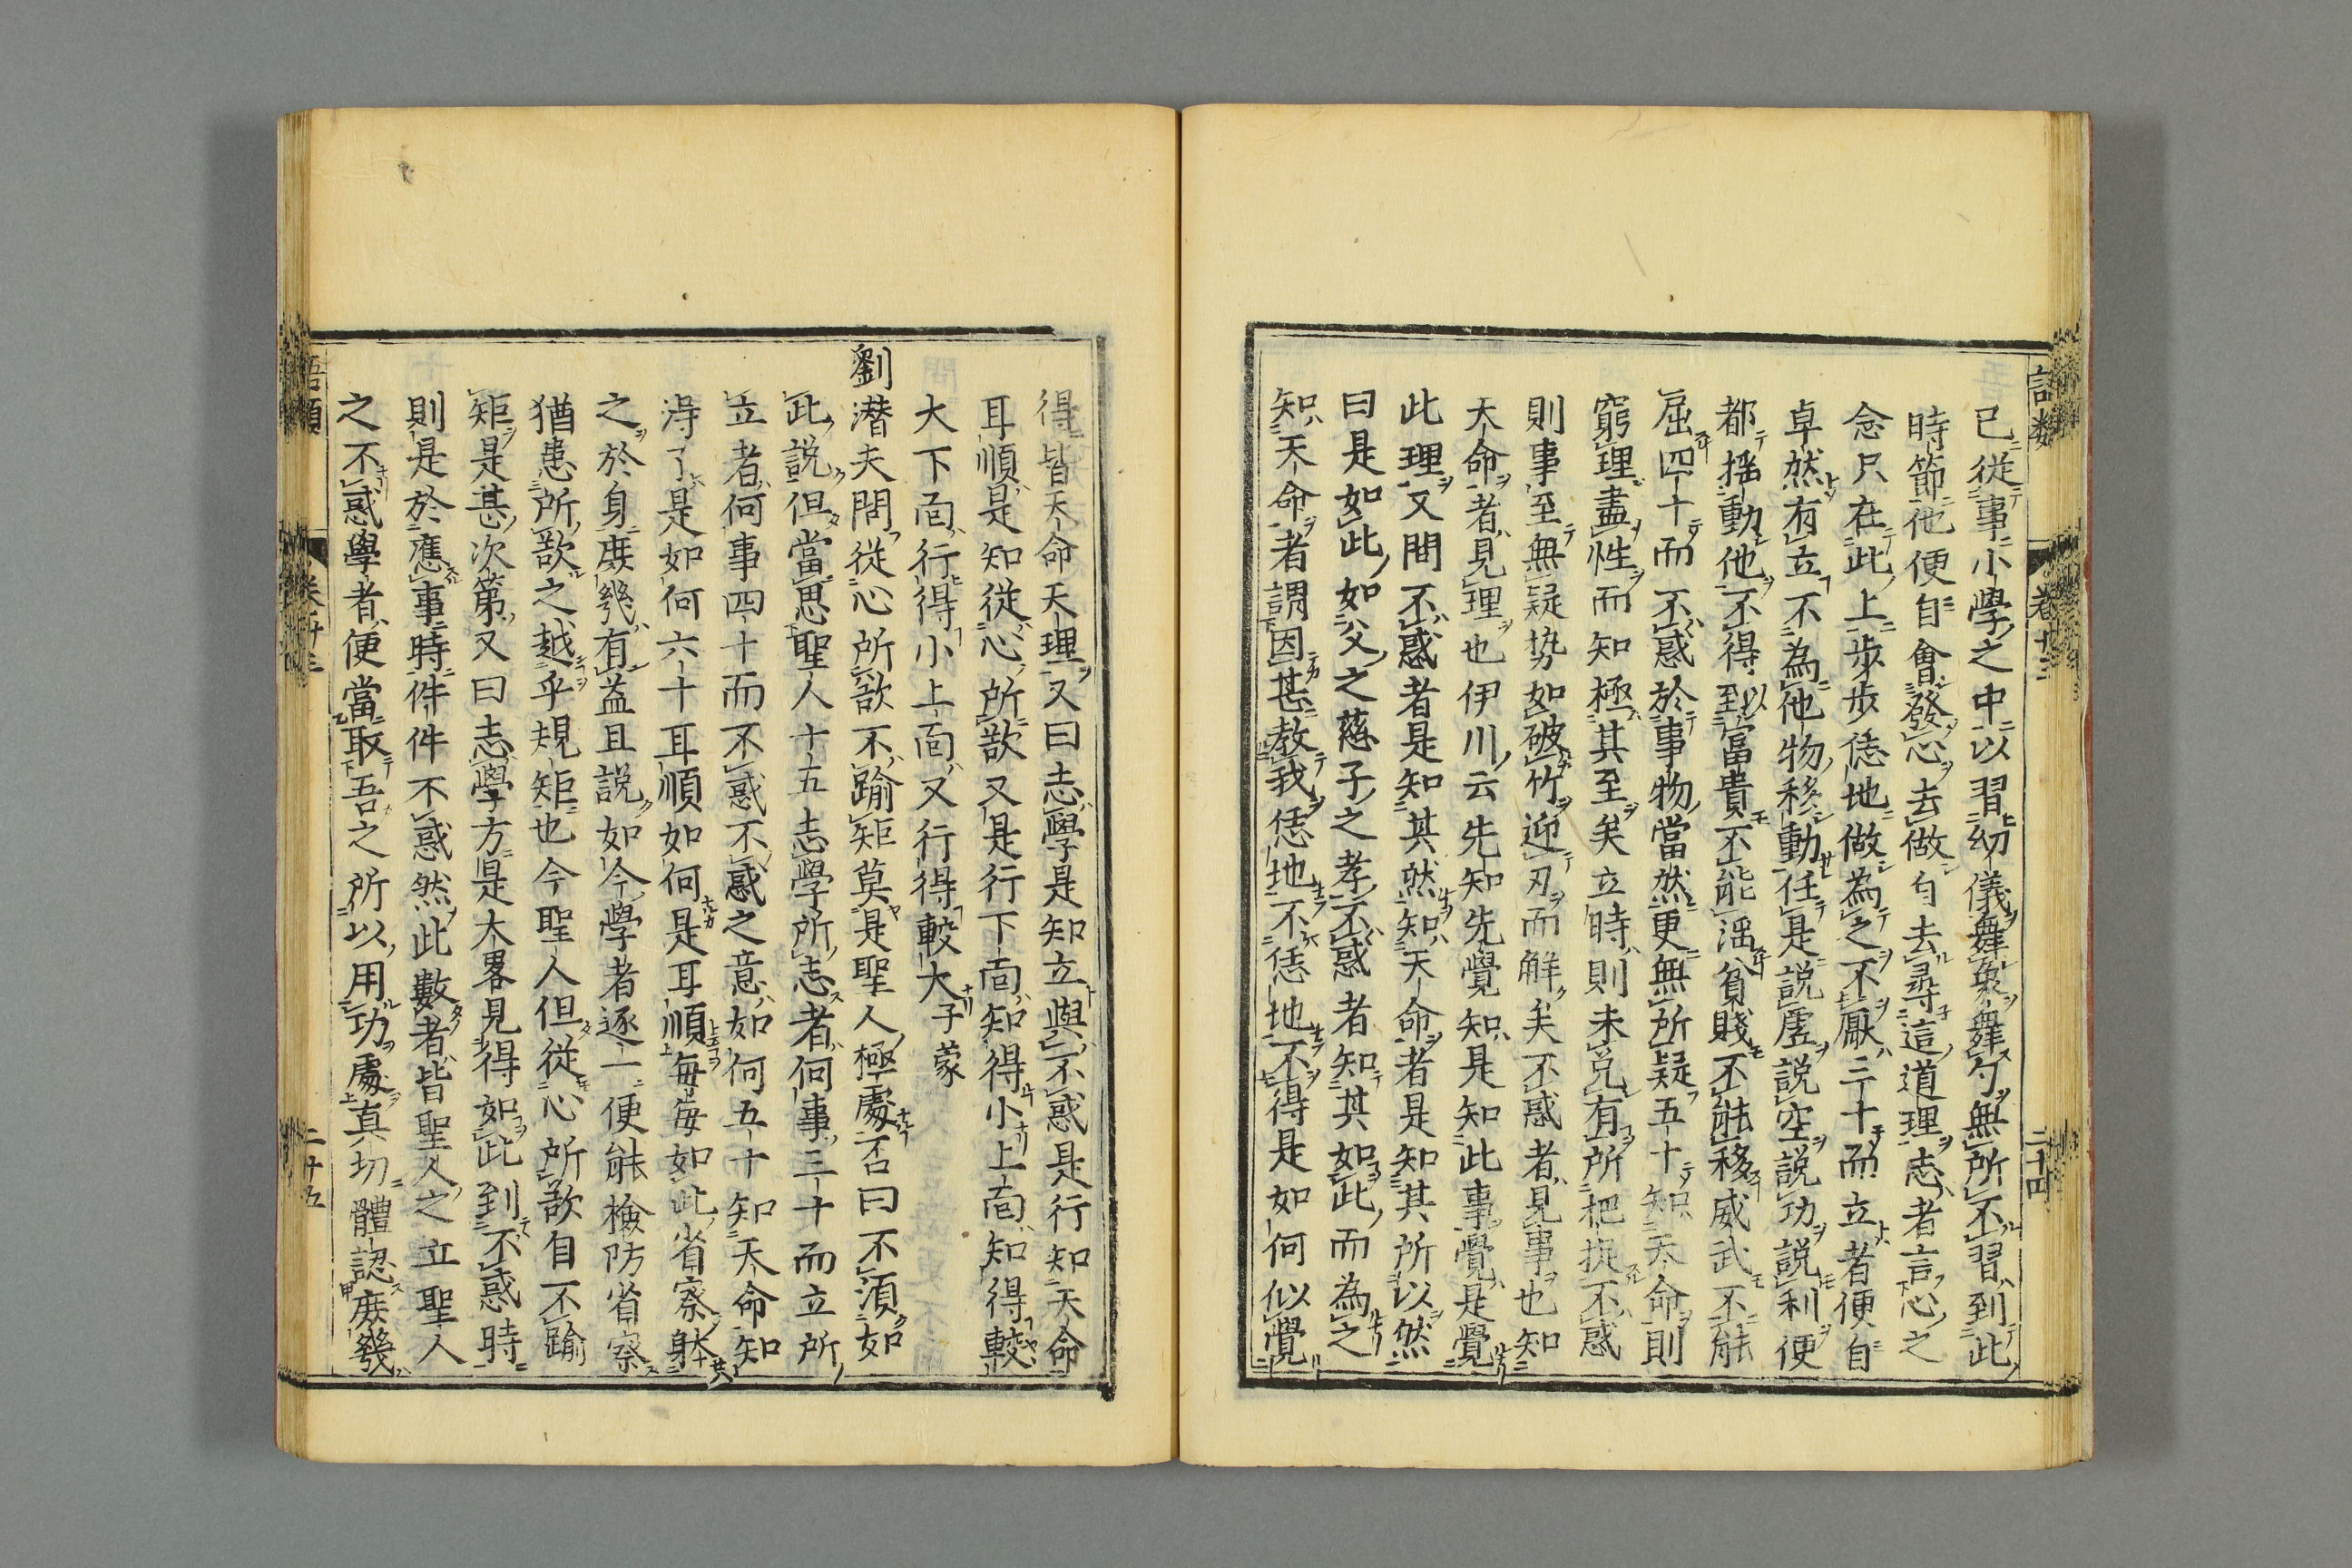 語類 卷廿三 二十四
已從事小學之中以習幼儀舞象舞勺無所不習到此
時節他便自會發心去做自去尋這道理志者言心之
念只在此上步步恁地做為之不厭三十而立者便自
卓然有立不為他物移動任是說虛說空說功說利便
都搖動他不得到以富貴不能淫貧賤不能移威武不能
屈四十而不惑於事物當然更無所疑五十知天命則
窮理盡性而知極其至矣立時則未免有所把捉不惑
則事至無疑勢如破竹迎刃而解矣不惑者見事也知
天命者見理也伊川云先知先覺知是知此事覺是覺
此理又問不惑者是知其然知天命者是知其所以然
曰是如此如父之慈子之孝不惑者知其如此而為之
知天命者謂因甚教我恁地不恁地不得是如何似覺
得皆天命天理又曰志學是知立與不惑是行知天命
耳順是知從心所欲又是行下面知得小上面知得較
大下面行得小上面又行得較大子蒙
劉潛夫問從心所欲不踰矩莫是聖人極處否曰不須如
此說但當思聖人十五志學所志者何事三十而立所
立者何事四十而不惑不惑之意如何五十知天命知
得了是如何六十耳順如何是耳順每每如此省察體
之於身庶幾有益且說如今學者逐一便能檢防省察
猶患所欲之越乎規矩也今聖人但從心所欲自不踰
矩是甚次第又曰志學方是大畧見得如此到不惑時
則是於應事時件件不惑然此數者皆聖人之立聖人
之不惑學者便當取吾之所以用功處真切體認庶幾
語類 卷廿三 二十五